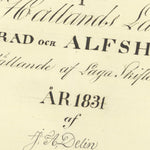 Hallands Lä
RAD OCH ALFSH
ållande af Laga Skifte
ÅR 1831
af
J. A. Delin